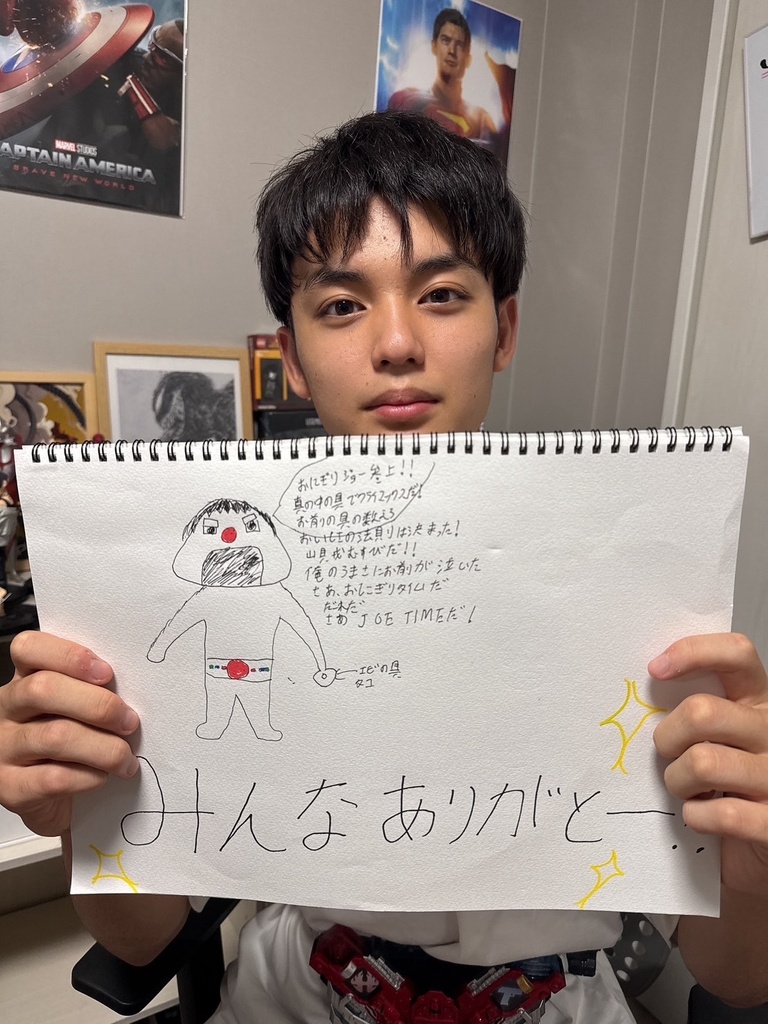 MARVEL STUDIOS
CAPTAIN AMERICA
BRAVE NEW WORLD
おにぎりジョー参上!!
真の中の具でクライマックスだ!
お前の具の数えろ
おいしさの法則は決まった!
山具我むすびだ!!
俺のうまさにお前が泣いた
さあ、おにぎりタイムだ
だれだ
さあ JOE TIMEだ!
エビの具
タコ
みんなありがとー!!